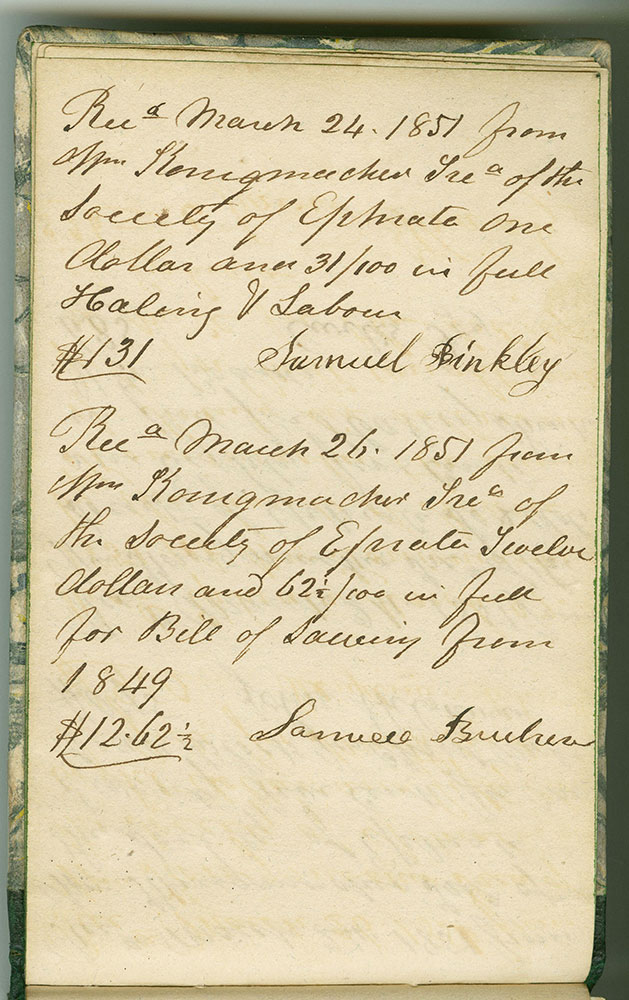 Recd March 24. 1851 from
Wm Konigmacher Trea of the
Society of Ephrata One
dollar and 31/100 in full
Haling & Labour
$1 31 Samuel Binkley
Recd March 26. 1851 from
Wm Konigmacher Trea of
the Society of Ephrata Twelve
dollars and 62½/100 in full
for Bill of Sawing from
1849
$12.62½ Samuel